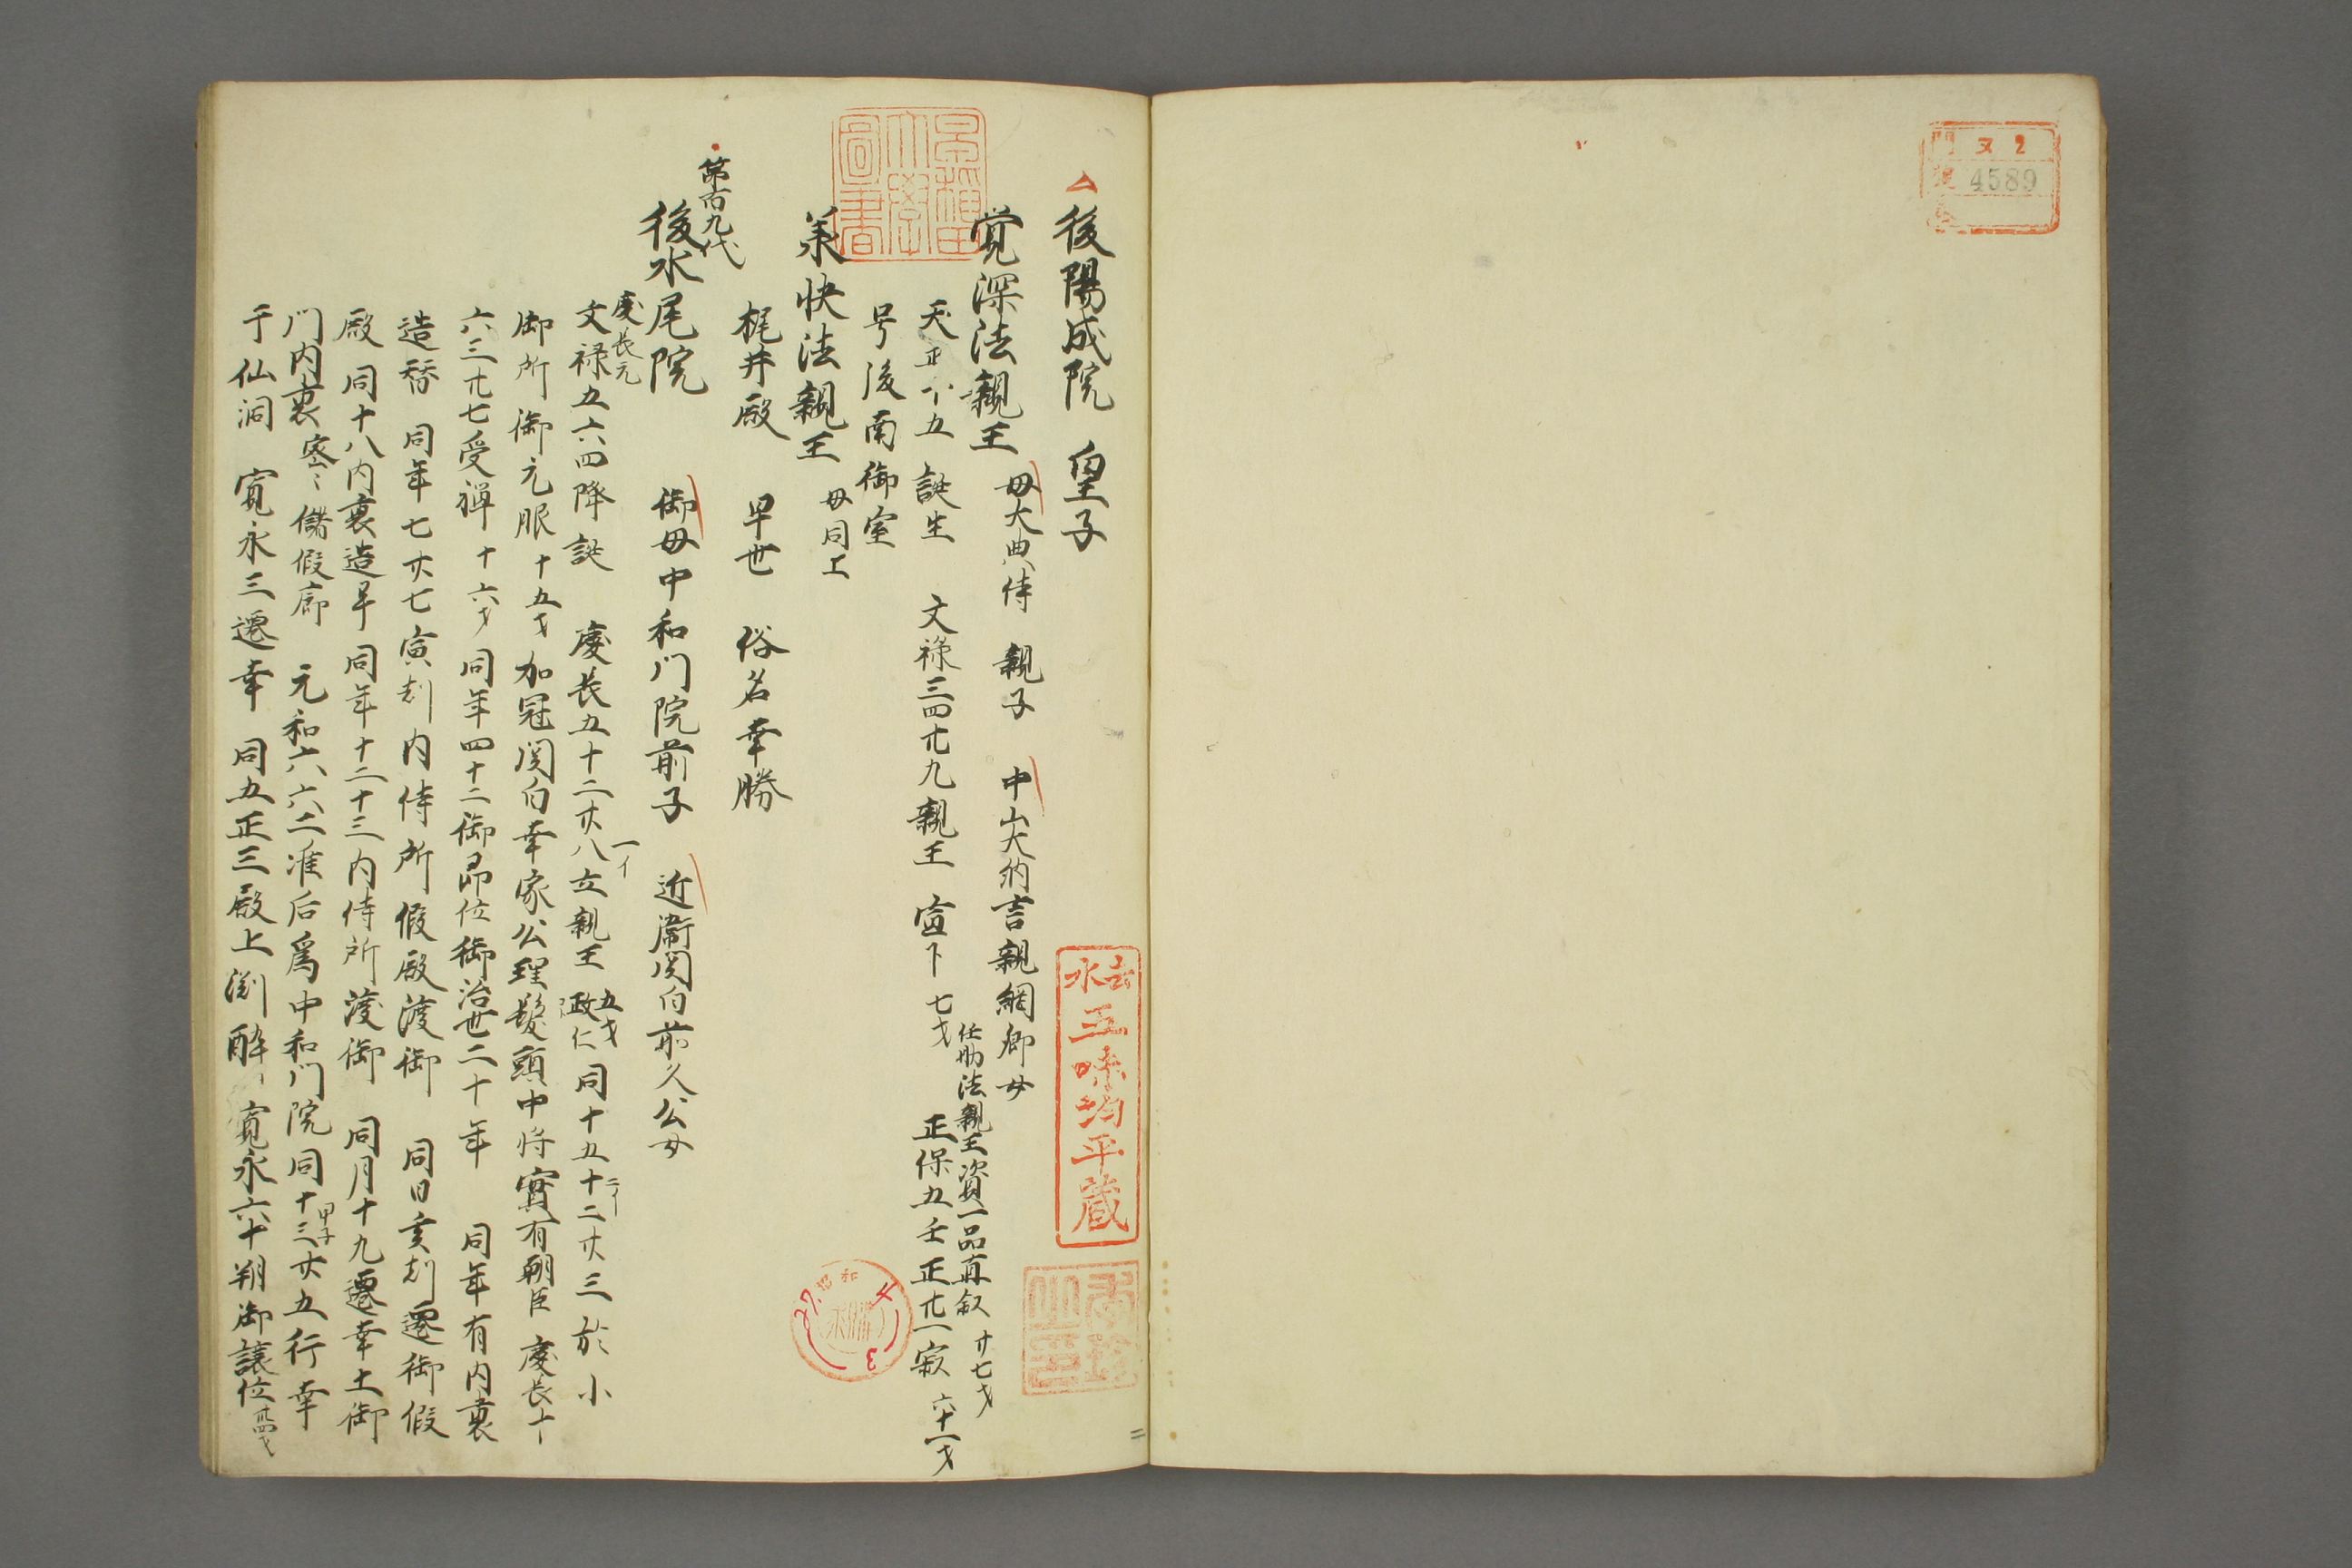 又2
門
號 4589
後陽成院 皇子
覚深法親王 母大典侍 親子 中山大納言親綱卿女
天正十五 誕生 文禄三四廿九親王宣下 七才
任助法親王資一品直叙 廿七才
正保五壬正廿一寂 六十一才
号後南御室
承快法親王 母同上
梶井殿 早世 俗名幸勝
第百九代
後水尾院 御母中和門院前子 近衞関白前久公女
慶長元
文禄五六四降誕 慶長五十二廿八立親王 五才 政仁 同十五十二廿三於小
一イ
御所御元服 十五才 加冠関白幸家公理髪頭中将實有朝臣 慶長十
六三廿七受禅 十六才 同年四十二御即位御治世二十年 同年有内裏
造替 同年七廿七寅刻内侍所假殿渡御 同日亥刻遷御假
殿 同十八内裏造畢 同年十二十三内侍所渡御 同月十九遷幸土御
門内裏 密〻儲假廊 元和六六二准后為中和門院同十三廿五行幸
甲子
于仙洞 寛永三遷幸 同五正三殿上淵酔 寛永六十一朔御譲位 卅四才
雲水
三味均平蔵
昭和
27. 4
3